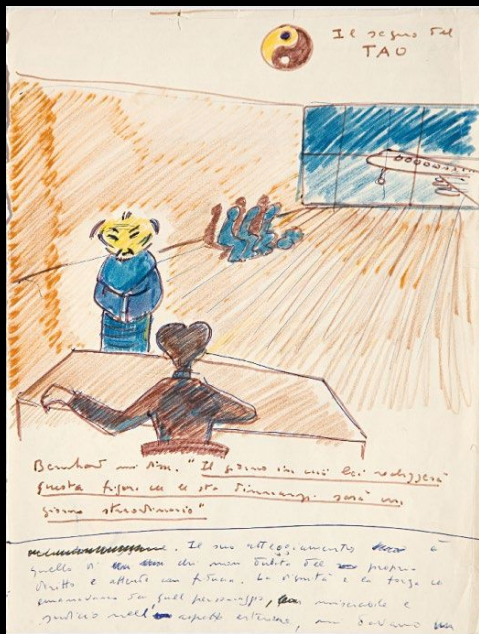 Il segno del
TAO
Bernhard mi dice. "Il giorno in cui lei realizzerà
questa figura che le sta dinnanzi sarà un
giorno straordinario"
Il suo atteggiamento è
quello di chi non dubita del proprio
diritto e attende con fiducia. La dignità e la forza che
emanavano da quel personaggio, miserabile e
nell' aspetto esteriore, mi davano un